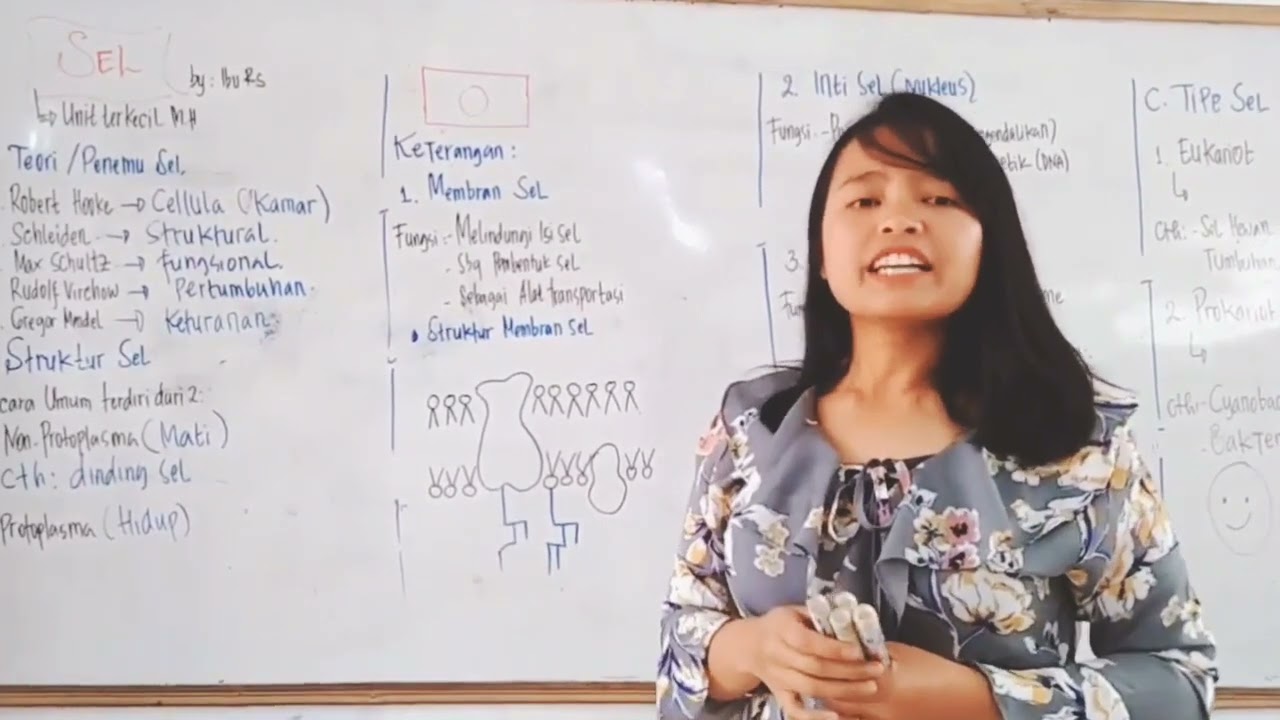 SEL
by: Ibu Rs
Unit terkecil M.H
Teori / Penemu Sel.
Robert Hooke → Cellula (Kamar)
Schleiden → Struktural.
Max Schultz → fungsional.
Rudolf Virchow → Pertumbuhan.
Gregor Mendel → Keturanan
Struktur Sel
cara Umum terdiri dari 2:
Non-Protoplasma (Mati)
Cth: dinding sel
Protoplasma (Hidup)
Keterangan:
1. Membran Sel
Fungsi: - Melindungi Isi sel
- Sbg Pembentuk sel
- Sebagai Alat transportasi
• Struktur Membran Sel
2. Inti Sel (Nukleus)
Fungsi: -
(DNA)
3.
C. Tipe Sel
1. Eukariot
Cth: - Sel Hewan
Tumbuhan
2. Prokariot
Cth: - Cyanobac
- Bakter